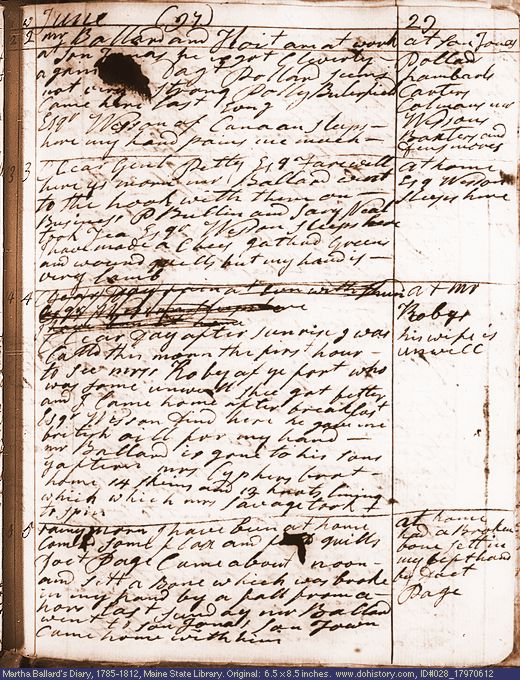 June (27) 27
2 2 mr Ballard and Hoit are at work
at son Jonas he is got Cleverly
again Day Pollard seems
not very strong Polly Butterfield
Came here last Evng
Esqr Wesson of Canaan sleeps
here my hand pains me much
at son Jonas
Pollard
hambards
Carters
Colmans mr
Wesons
Baxters and
3 3 Clear Genl Petty Esqr Farewell
here ys morn mr Ballard went
to the hook with them on
Business P Bullin and Sary Neal
took Tea Esqr Wesson sleeps here
I have made a Chees gathrd Greens
and wound quills but my hand is
very lamb
at home
Esqr Wesson
sleeps here
4 4
Clear Day after sunrise I was
Calld this morn the first hour
to see mrs Roby af ye port who
was some unwell shee got better
and I came home after breakfast
Esqr Wesson Dind here he gave me
british oill for my hand
mr Ballard is gone to his sons
yafternn mrs Cyphers brot
home 14 skeins and 13 knots lining
which which mrs Savage took
to spin
at mr
Robys
his wife is
unwell
5 5 rainy morn I have been at home
Comb some flax and quills
Doct Page Came about noon
and sett a Bone which was broke
in my hand by a fall from a
hors last sunday mr Ballard
went to son Jonas son Town
Came home with him
at home
had a Broken
bone sett in
my left hand
by Doct
Page
Martha Ballard's Diary, 1785-1812, Maine State Library. Original: 6.5 x 8.5 inches. www.dohistory.com, ID#028_17970612